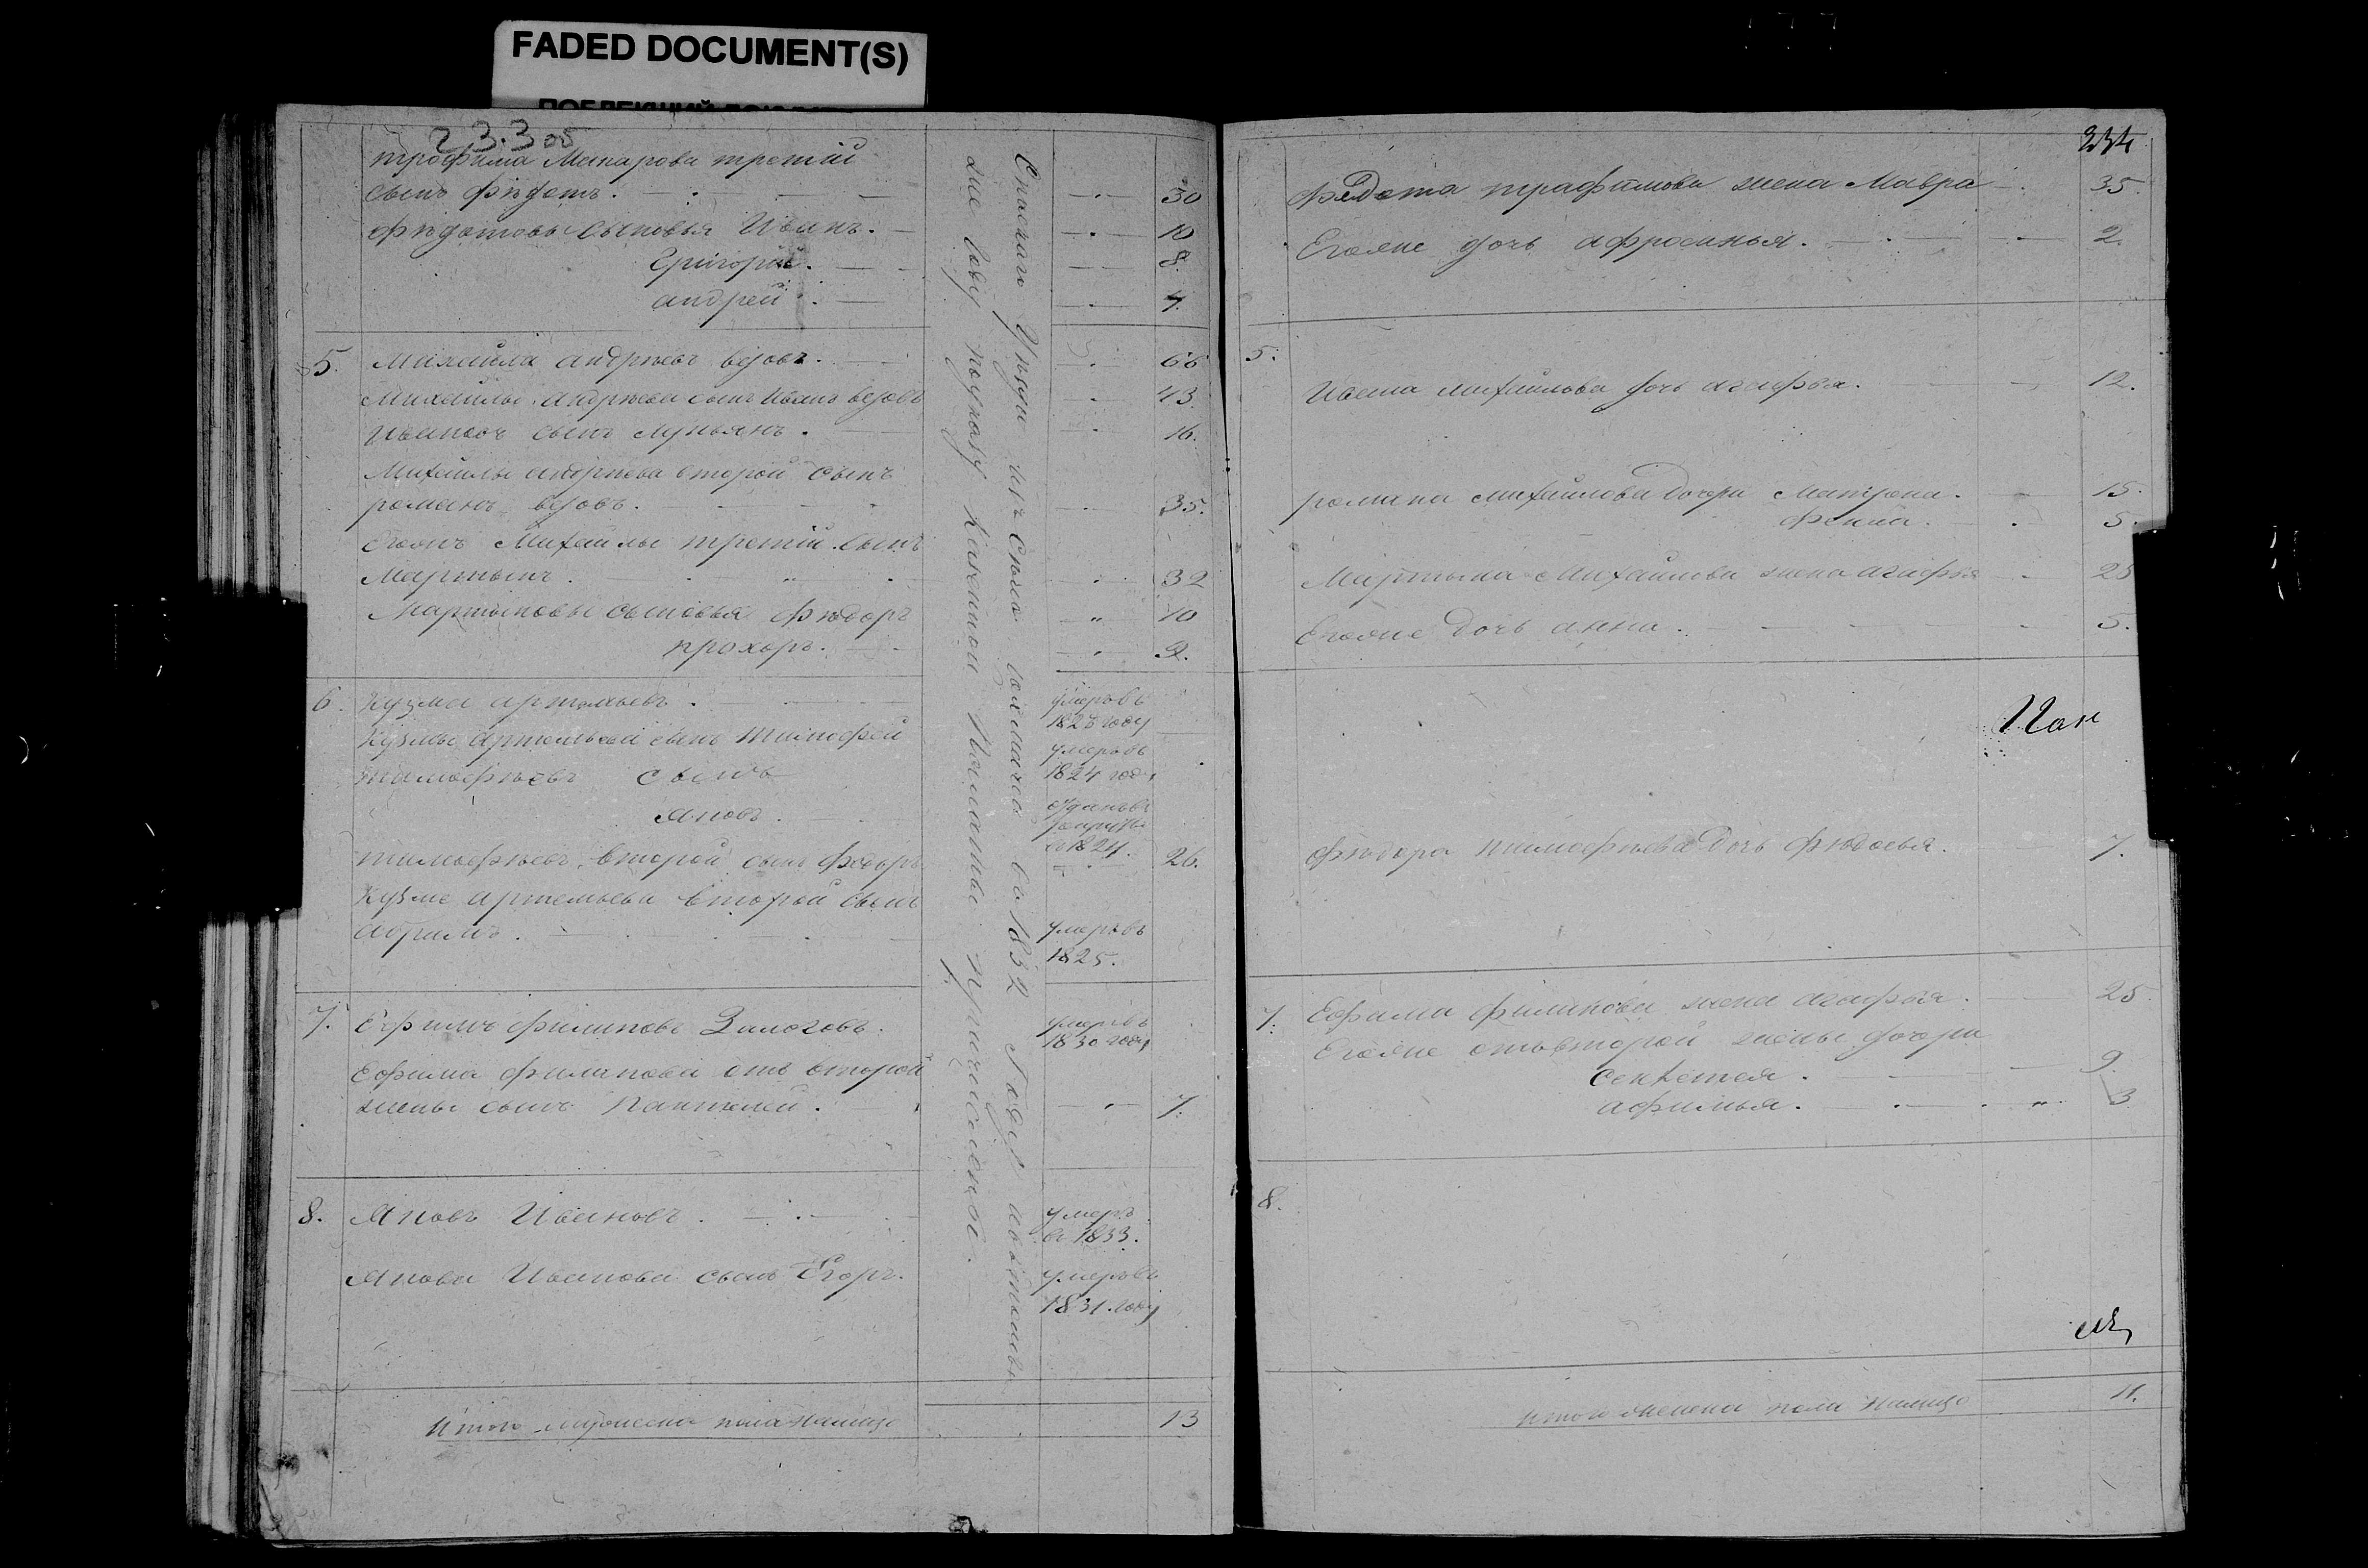 FADED DOCUMENT(S)
233 об
трофима Макарова третий
сынъ фѣдотъ. 30
фѣдотовы сыновья Иванъ. 10
Григорий. 8.
андрей. 4.
5. Михайла андрѣевъ 66
Михайлы андрѣева сынъ Иванъ 43
Ивановъ сынъ лукьянъ. 16.
Михайлы андрѣева второй сынъ
романъ 35.
Михайлы третий сынъ
Мартынъ. 32
Мартыновы сыновья фѣдоръ 10
прохоръ. 9.
6. Кузма артемьевъ. умеръ въ
году
Кузмы артемьева сынъ тимофей умеръ въ
тимофѣевъ сынъ 1824 году
Яковъ.
в 1824.
тимофѣевъ второй сынъ федоръ 26.
Кузмы артемьева второй сынъ
абрамъ. умеръ въ
1825.
7. Ефимъ филиповъ умеръ въ
1830 году
Ефима филипова отъ второй
жены сынъ Пантелей. 7.
8. Яковъ Ивановъ. умеръ
въ 1833.
Якова Иванова сынъ Егоръ. умеръ въ
1831. году
Итого мужеска пола налицо 13
Спаскаго Уѣзда изъ села въ 1832 Года
по указу Казенной Палаты причисленъ.
234
федота трафимова жена Мавра 35.
Егоже дочь афросинья. 2.
5.
Ивана михайлова дочь агафья. 12.
романа михайлова дочери Матрена. 15.
5.
Мартына Михайлова жена агафья 25
Егоже дочь анна. 5.
фѣдора тимофѣева дочь фѣдосья. 7.
7. Ефима филипова жена агафья. 25.
Егоже отъ второй жены дочери
9.
афимья. 3
8.
итого женска пола налицо 11.